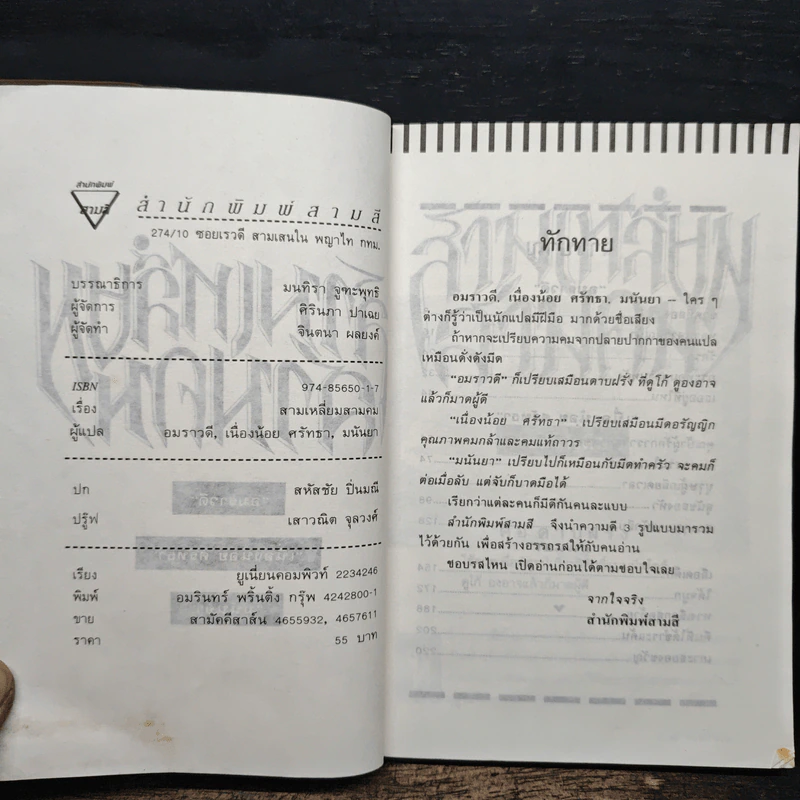 สำนักพิมพ์
สามสี
สำนักพิมพ์สามสี
274/10 ซอยเรวดี สามเสนใน พญาไท กทม.
บรรณาธิการ มนทิรา จูฑะพุทธิ
ผู้จัดการ ศิรินภา ปาเฉย
ผู้จัดทำ จินตนา ผลยงค์
ISBN 974-85650-1-7
เรื่อง สามเหลี่ยมสามคม
ผู้แปล อมราวดี, เนื่องน้อย ศรัทธา, มนันยา
ปก สหัสชัย ปิ่นมณี
ปรู๊ฟ เสาวณิต จุลวงศ์
เรียง ยูเนี่ยนคอมพิวท์ 2234246
พิมพ์ อมรินทร์ พริ้นติ้ง กรุ๊พ 4242800-1
ขาย สามัคคีสาส์น 4655932, 4657611
ราคา 55 บาท
ทักทาย
อมราวดี, เนื่องน้อย ศรัทธา, มนันยา – ใคร ๆ
ต่างก็รู้ว่าเป็นนักแปลมีฝีมือ มากด้วยชื่อเสียง
ถ้าหากจะเปรียบความคมจากปลายปากกาของคนแปล
เหมือนดั่งดังมีด
"อมราวดี" ก็เปรียบเสมือนดาบฝรั่ง ที่ดูโก้ ดูองอาจ
แล้วก็มาดผู้ดี
"เนื่องน้อย ศรัทธา" เปรียบเสมือนมีดอรัญญิก
คุณภาพคมกล้าและคมแท้ถาวร
"มนันยา" เปรียบไปก็เหมือนกับมีดทำครัว จะคมก็
ต่อเมื่อลับ แต่จับก็บาดมือได้
เรียกว่าแต่ละคนก็มีดีกันคนละแบบ
สำนักพิมพ์สามสี จึงนำความดี 3 รูปแบบมารวม
ไว้ด้วยกัน เพื่อสร้างอรรถรสให้กับคนอ่าน
ชอบรสไหน เปิดอ่านก่อนได้ตามชอบใจเลย
จากใจจริง
สำนักพิมพ์สามสี